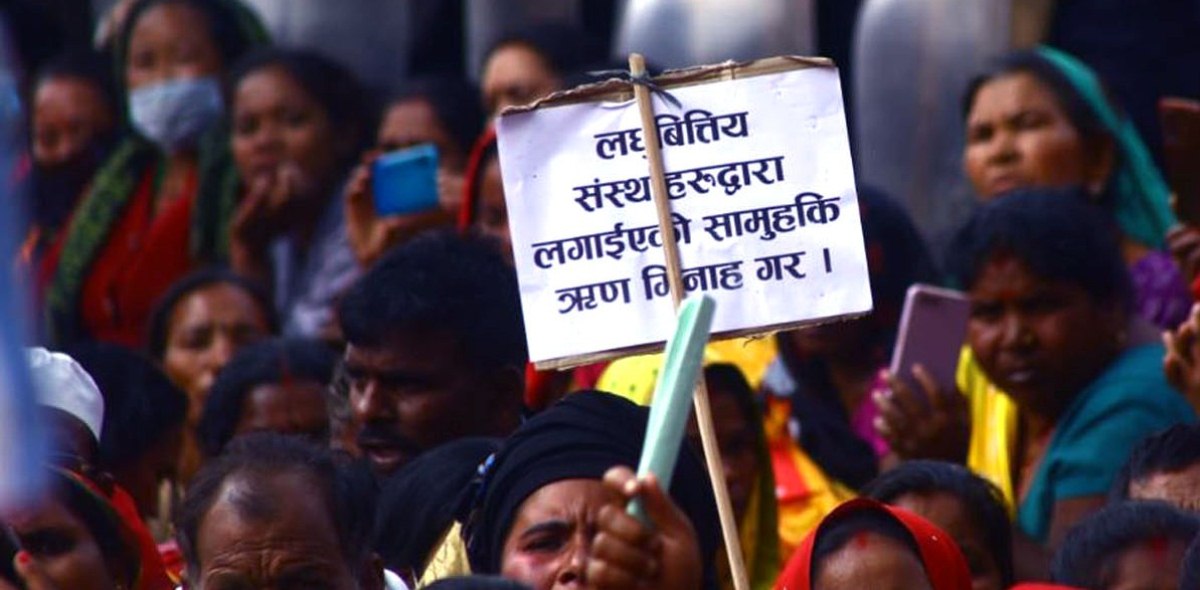 लघुबित्तिय
संस्थाहरुद्वारा
लगाईएको सामुहकि
ऋण मिनाह गर ।